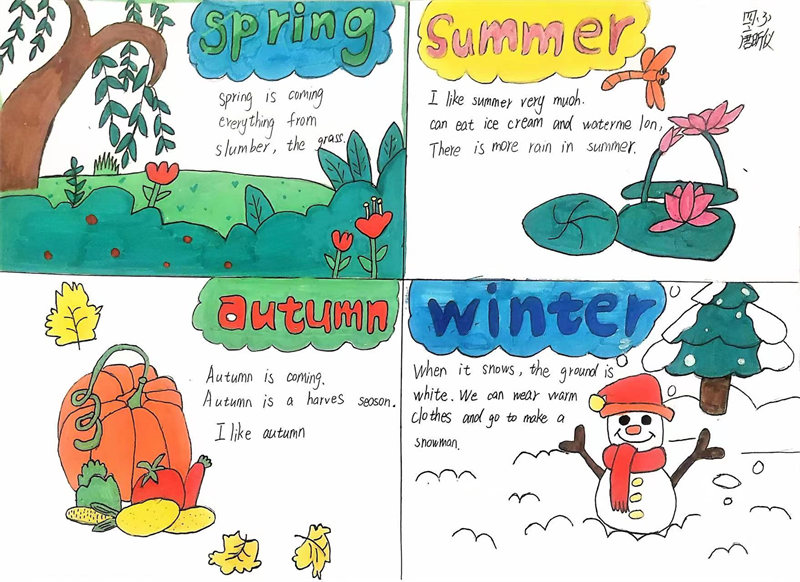 spring
spring is coming
everything from
slumber, the grass.
Summer
I like summer very much.
can eat ice cream and waterme lon,
There is more rain in summer.
四.3
autumn
Autumn is coming.
Autumn is a harves season.
I like autumn
winter
When it snows, the ground is
white. We can wear warm
clothes and go to make a
snowman.